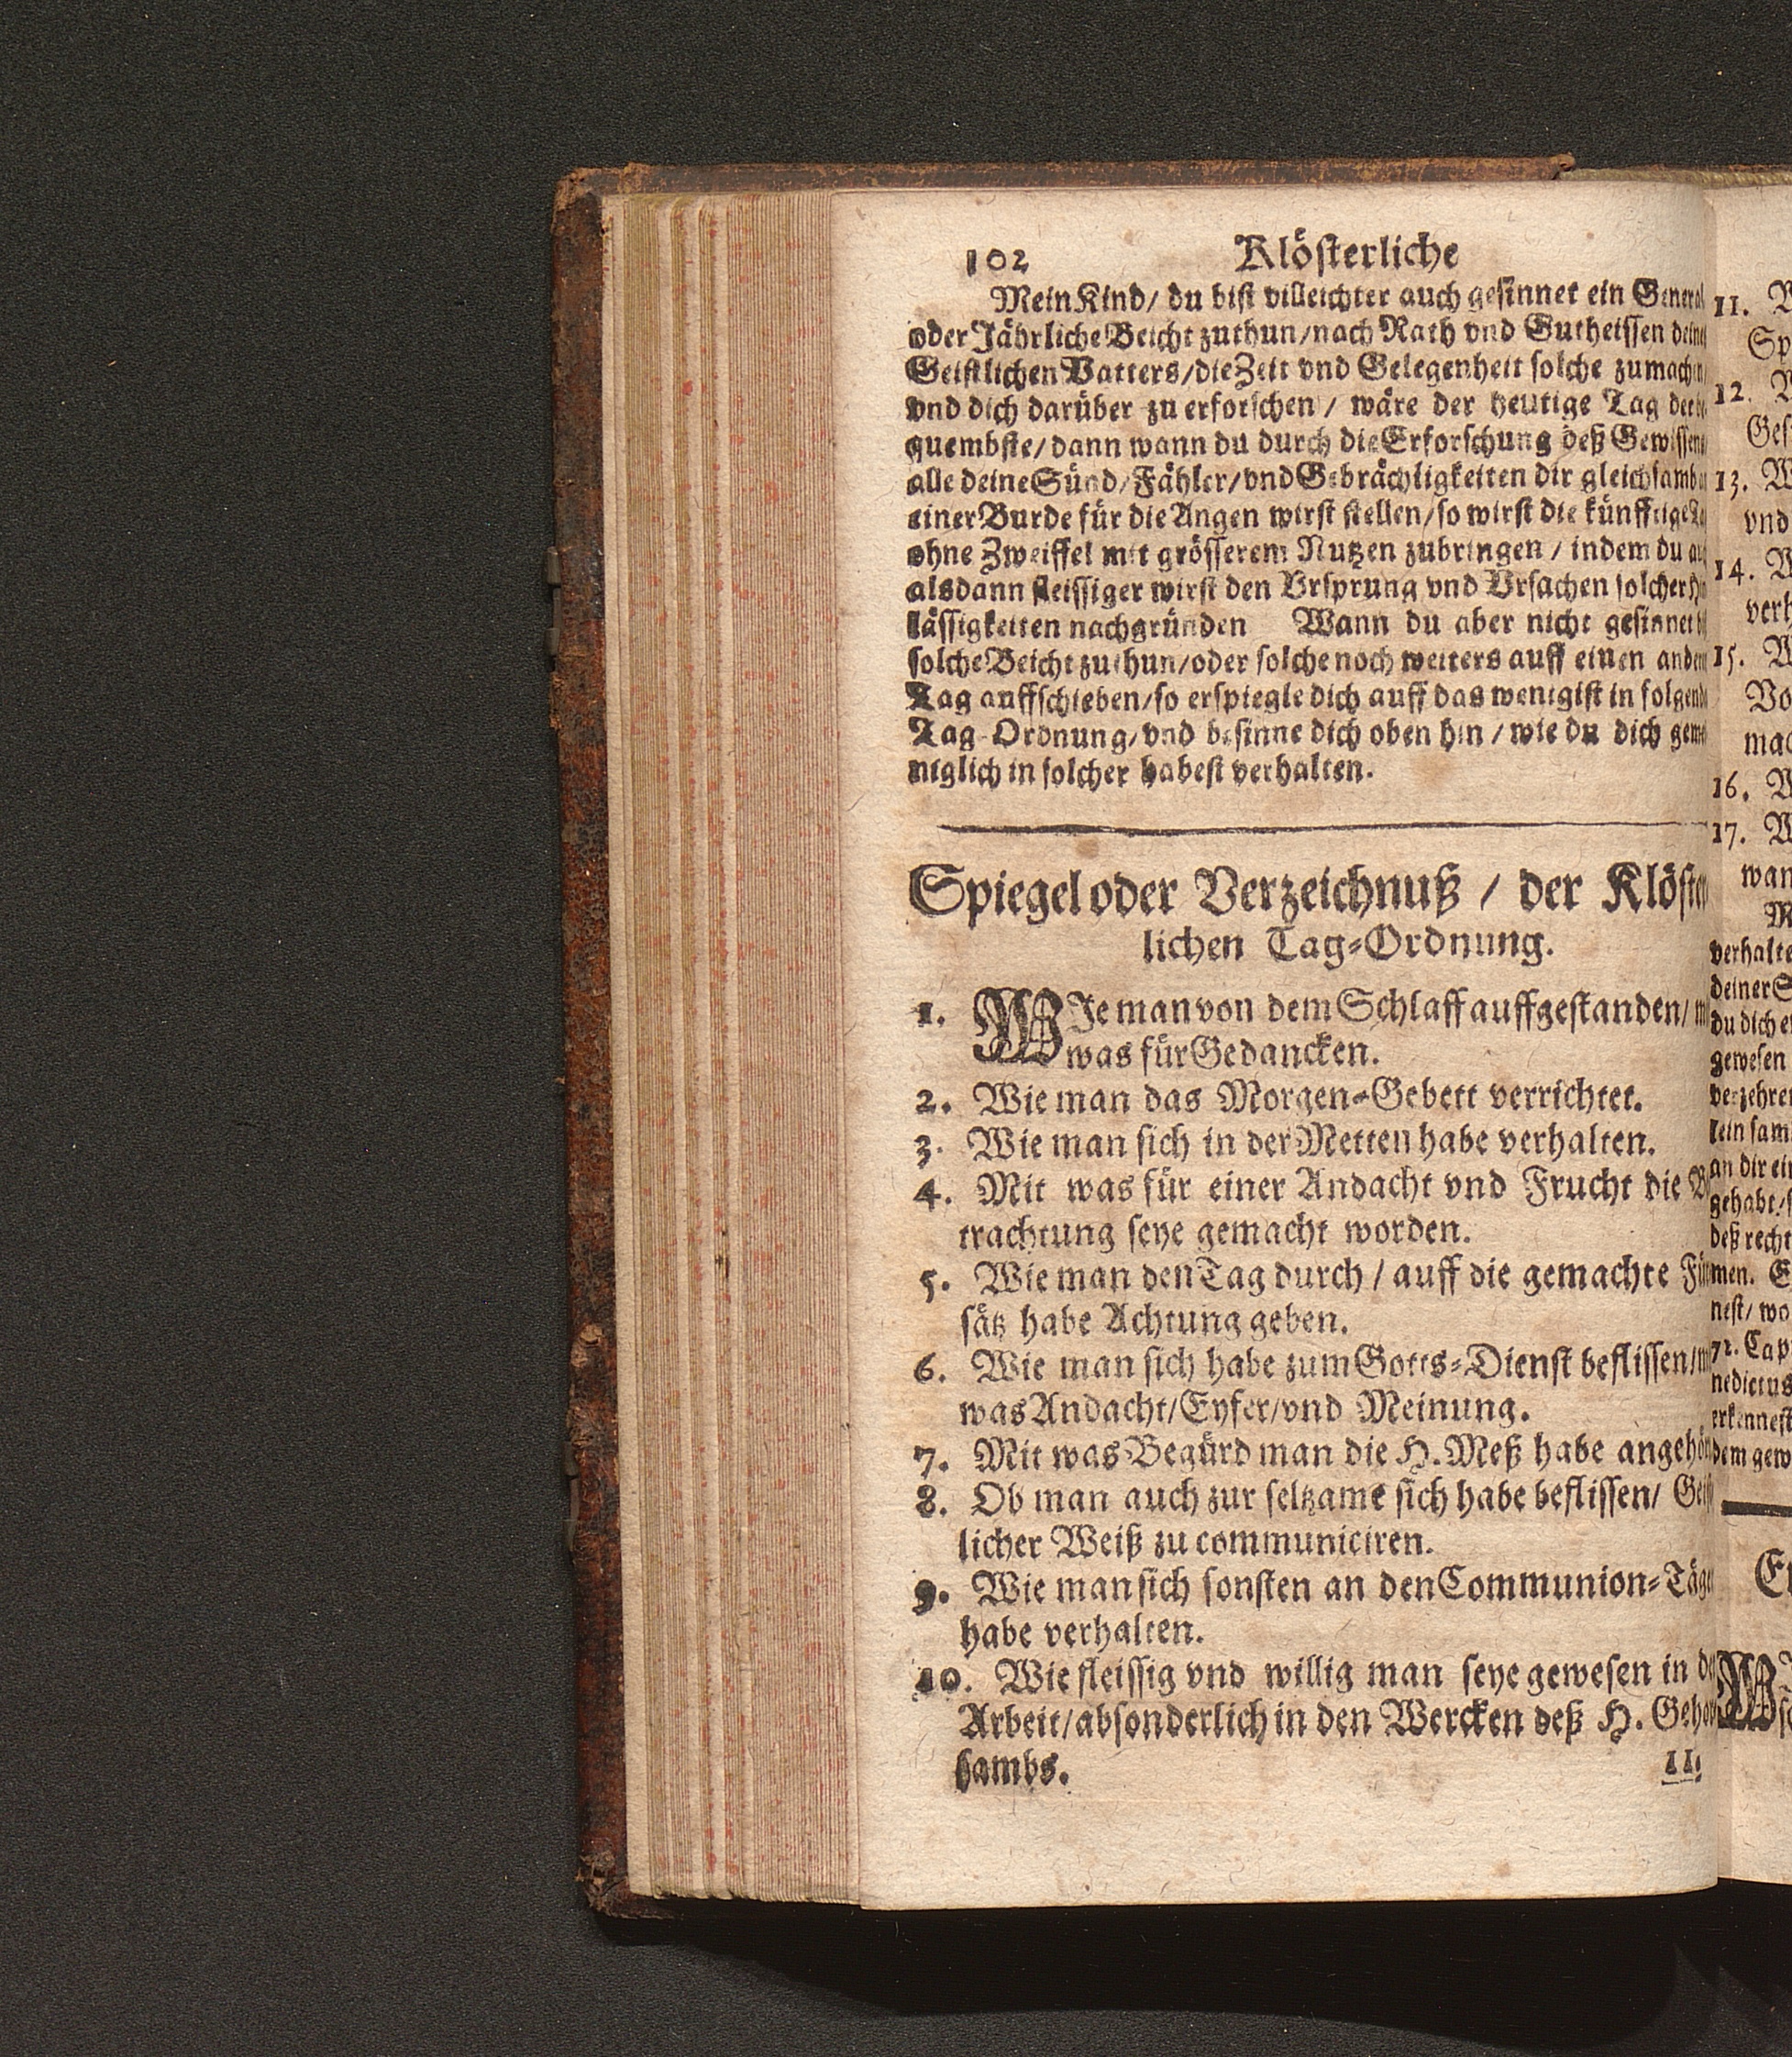 102 Klösterliche
Mein Kind/ du bist villeichter auch gesinnet ein General
oder Jährliche Beicht zuthun/nach Rath vnd Gutheissen deines
Geistlichen Vatters/die Zeit vnd Gelegenheit solche zumachen/
vnd dich darüber zu erforschen / wäre der heutige Tag der be-
quembste/ dann wann du durch die Erforschung deß Gewissens
alle deine Sünd/Fähler/vnd Gebrächligkeiten dir gleichsamb
einer Burde für die Angen wirst stellen/so wirst die künfftige
ohne Zweiffel mit grösserem Nutzen zubringen / indem du
alsdann fleissiger wirst den Vrsprung vnd Vrsachen solcher
lässigkeiten nachgründen Wann du aber nicht gesinnet
solche Beicht zuthun/oder solche noch weiters auff einen andern
Tag auffschieben/so erspiegle dich auff das wenigist in folgender
Tag-Ordnung/vnd besinne dich oben hin / wie du dich gemei-
niglich in solcher habest verhalten.
Spiegel oder Verzeichnuß / der Klöster-
lichen Tag-Ordnung.
1. WIe man von dem Schlaff auffgestanden/
was für Gedancken.
2. Wie man das Morgen-Gebett verrichtet.
3. Wie man sich in der Metten habe verhalten.
4. Mit was für einer Andacht vnd Frucht die Be-
trachtung seye gemacht worden.
5. Wie man den Tag durch / auff die gemachte Für-
sätz habe Achtung geben.
6. Wie man sich habe zum Gotts-Dienst beflissen/
was Andacht/Eyfer/vnd Meinung.
7. Mit was Begürd man die H. Meß habe angehört
8. Ob man auch zur seltzame sich habe beflissen/ Geist-
licher Weiß zu communiciren.
9. Wie man sich sonsten an den Communion-Tägen
habe verhalten.
10. Wie fleissig vnd willig man seye gewesen in der
Arbeit/absonderlich in den Wercken deß H. Gehor-
sambs.
11.
11.
12.
13.
vnd
14.
15.
16.
17.
gewesen
men.
72. Cap
dem gew